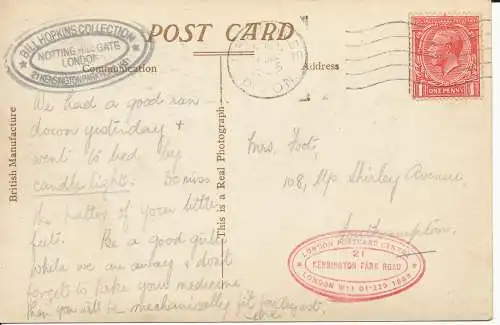 POST CARD
BILL HOPKINS COLLECTION
NOTTING HILL GATE
LONDON
21 KENSINGTON PARK
Communication
Address
British Manufacture
This is a Real Photograph
ONE PENNY
We had a good run
down yesterday +
went to bed by
candlelight. Do miss
the patter of your little
feet. Be a good girl
while we are away & don't
forget to take your medicine
then you will be mechanically fit
Mrs. Foot,
108, Up Shirley Avenue,
Southampton.
LONDON POSTCARD CENTRE
21
KENSINGTON PARK ROAD
LONDON W11 01-229 1888